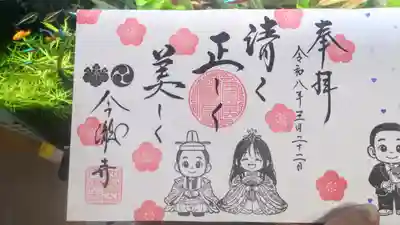 奉拝
令和八年三月二十二日
清く
正しく
美しく
今瀬寺